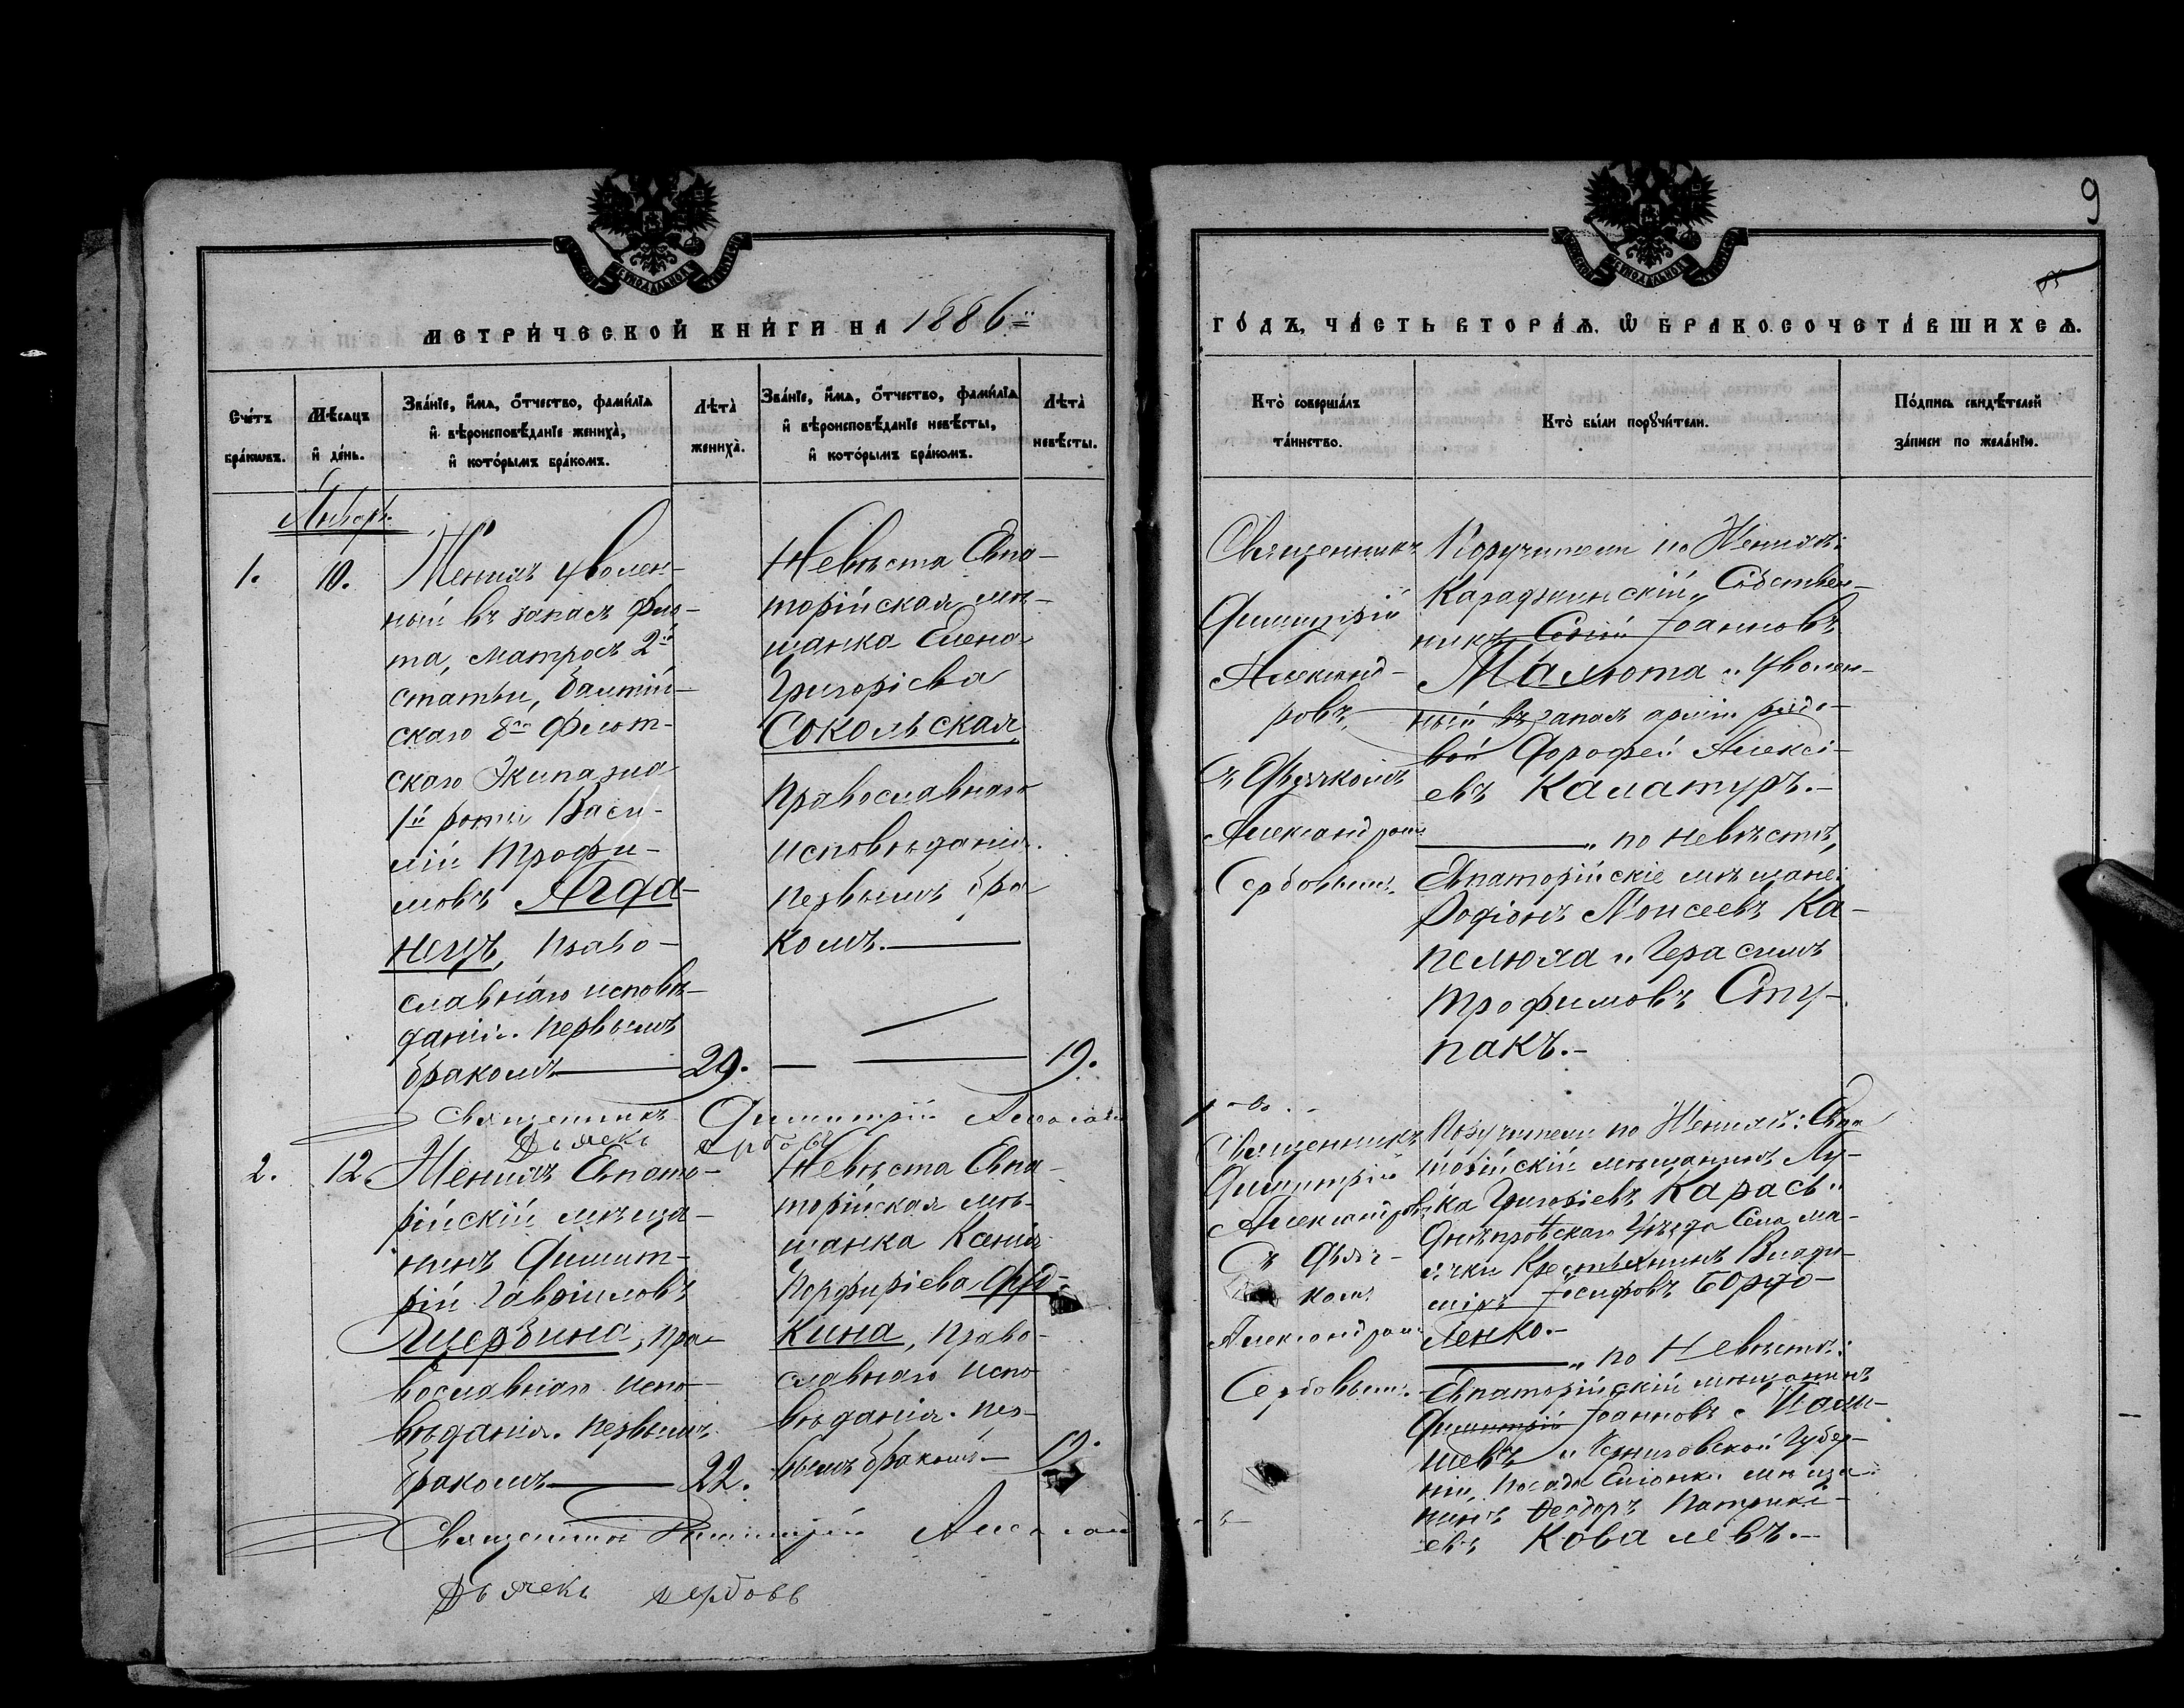 9
МЕТРИ́ЧЕСКОЙ КНИ́ГИ НА 1886
ГО́ДЪ, ЧА́СТЬ ВТОРА́Ѧ, Ѡ҆ БРАКОСОЧЕТА́ВШИХСѦ.
Сче́тъ бра́кѡвъ.
Мѣ́сяцъ и҆ де́нь.
Зва́нїе, и҆́мѧ, ѻ҆́тчество, фами́лїѧ
и҆ вѣроисповѣ́данїе жениха̀,
и҆ кото́рымъ бра́комъ.
Лѣта̀ жениха̀.
Зва́нїе, и҆́мѧ, ѻ҆́тчество, фами́лїѧ
и҆ вѣроисповѣ́данїе невѣ́сты,
и҆ кото́рымъ бра́комъ.
Лѣта̀ невѣ́сты.
Кто̀ соверша́лъ та́инство.
Кто̀ бы́ли порꙋчи́тели.
По́дпись свидѣ́телей
за́писи по жела́нїю.
Январь
1.
10.
Женихъ уволен-
ный въ запасъ фло-
та, матросъ 2й
статьи, Балтій-
скаго 8го Флот-
скаго Экипажа
1й роты Васи-
лій Трофи-
мовъ Ягда-
нецъ, право-
славнаго исповѣ-
данія. первымъ
бракомъ
29.
Невѣста Евпа-
торійская мѣ-
щанка Елена
Григоріева
Сокольская
православнаго
исповѣданія.
первымъ бра
комъ.
19.
Священникъ
Димитрій
Александ-
ровъ
Съ Дьячкомъ
Александромъ
Сербовымъ.
Поручители по Женихѣ:
Караджинскій Собствен-
никъ Іоанновъ
Малюта и Уволен-
ный въ запасъ арміи рядо-
вой Дорофей Алексі-
евъ Калатуръ.-
" по невѣстѣ,
Евпаторійскіе мѣщане:
Родіонъ Моисеевъ Ка-
пелюха и Герасимъ
Трофимовъ Сту-
пакъ.-
Священникъ Димитрій
Дьячекъ Сербовъ
2.
12.
Женихъ Евпато-
рійскій мѣща-
нинъ Димит-
рій Гавріиловъ
Щербина, пра-
вославнаго испо-
вѣданія. первымъ
бракомъ
22.
Невѣста Евпа-
торійская мѣ-
щанка Ксенія
Порфиріева
кина, право-
славнаго испо
вѣданія. пер-
вымъ бракомъ.-
19.
Священникъ
Димитрій
Александровъ
Съ Дьяч-
комъ
Александромъ
Сербовымъ.
Поручители по Женихѣ: Евпа
торійскій мѣщанинъ Лу-
ка Григоріевъ Карась и
Днѣпровскаго Уѣзда Села Ма-
ячки Крестьянинъ Влади-
міръ Іосифовъ Бордо-
ленко.-
" по Невѣстѣ:
Евпаторійскій мѣщанинъ
Димитрій Іоанновъ
шевъ и Черниговской Губер-
ніи, посада Еліонки мѣща-
нинъ Ѳеодоръ Патрикі-
евъ Ковалевъ.-
Священникъ Димитрій
Дьячекъ Сербовъ